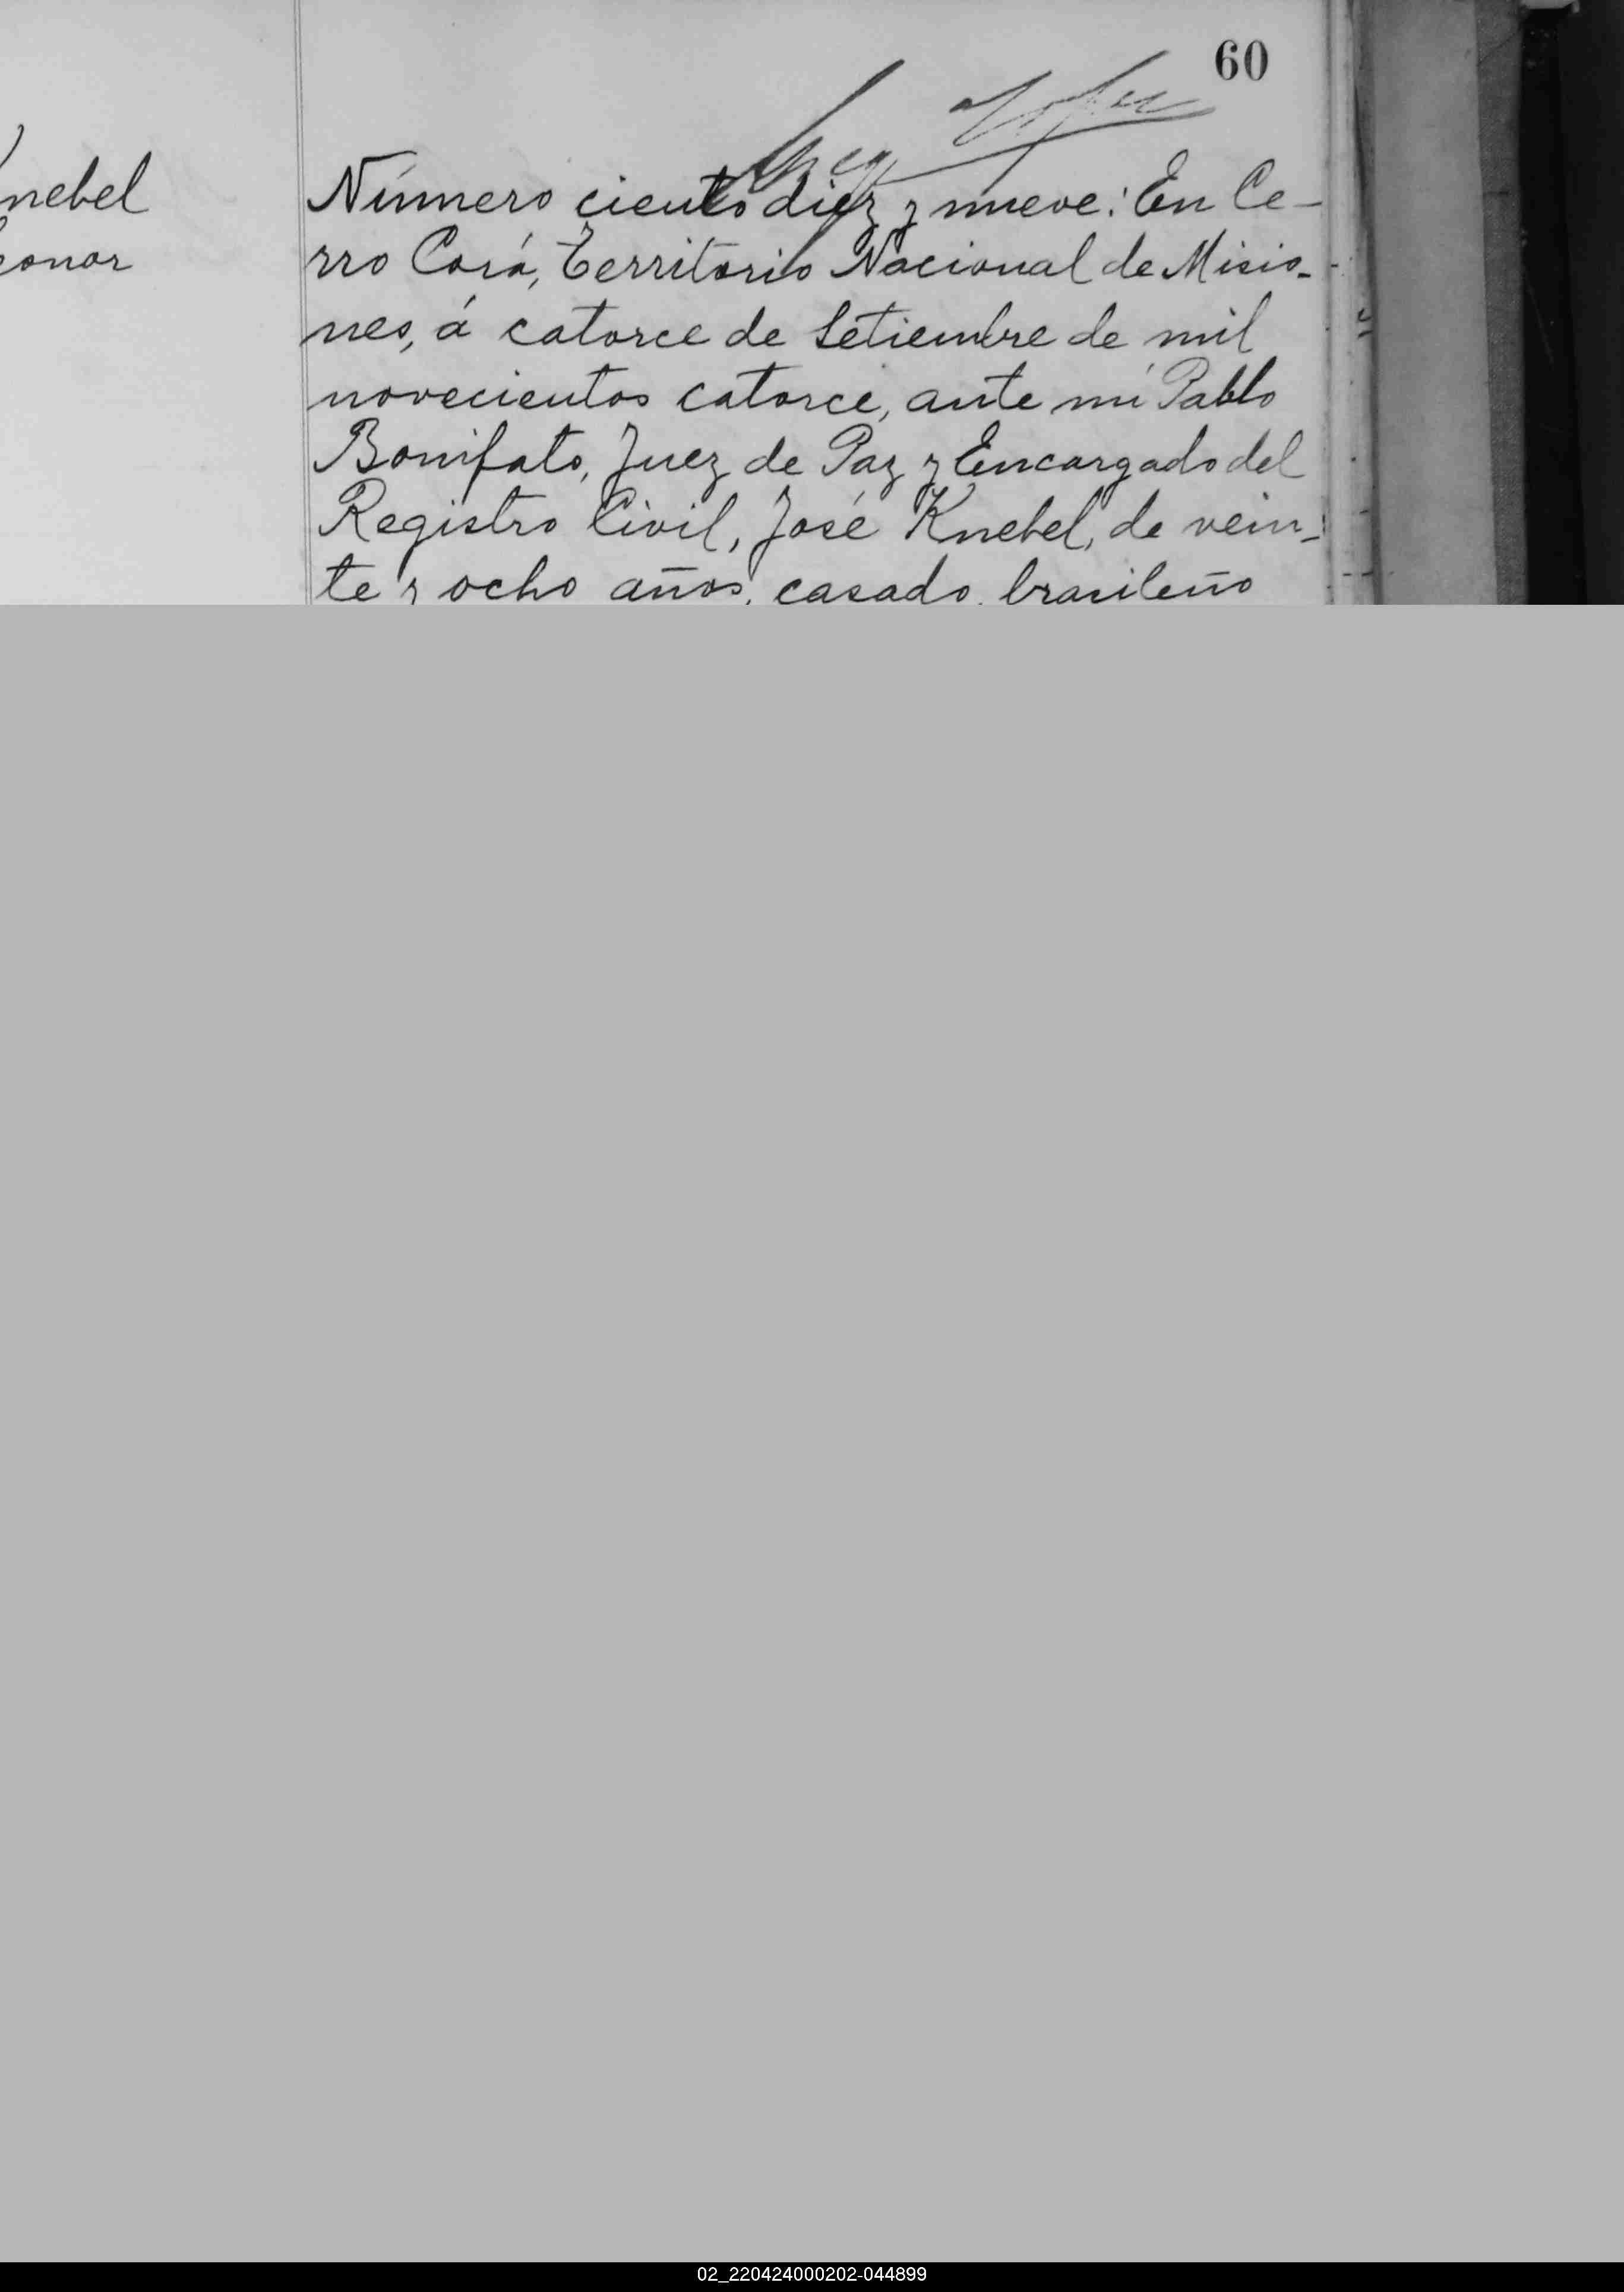 60
nebel
onor
Número ciento diez y nueve: En Ce-
rro Corá, Territorio Nacional de Misio-
nes, á catorce de Setiembre de mil
novecientos catorce, ante mí Pablo
Bonifato, Juez de Paz y Encargado del
Registro Civil, José Knebel, de vein-
te y ocho años, casado, brasileño
02_220424000202-044899